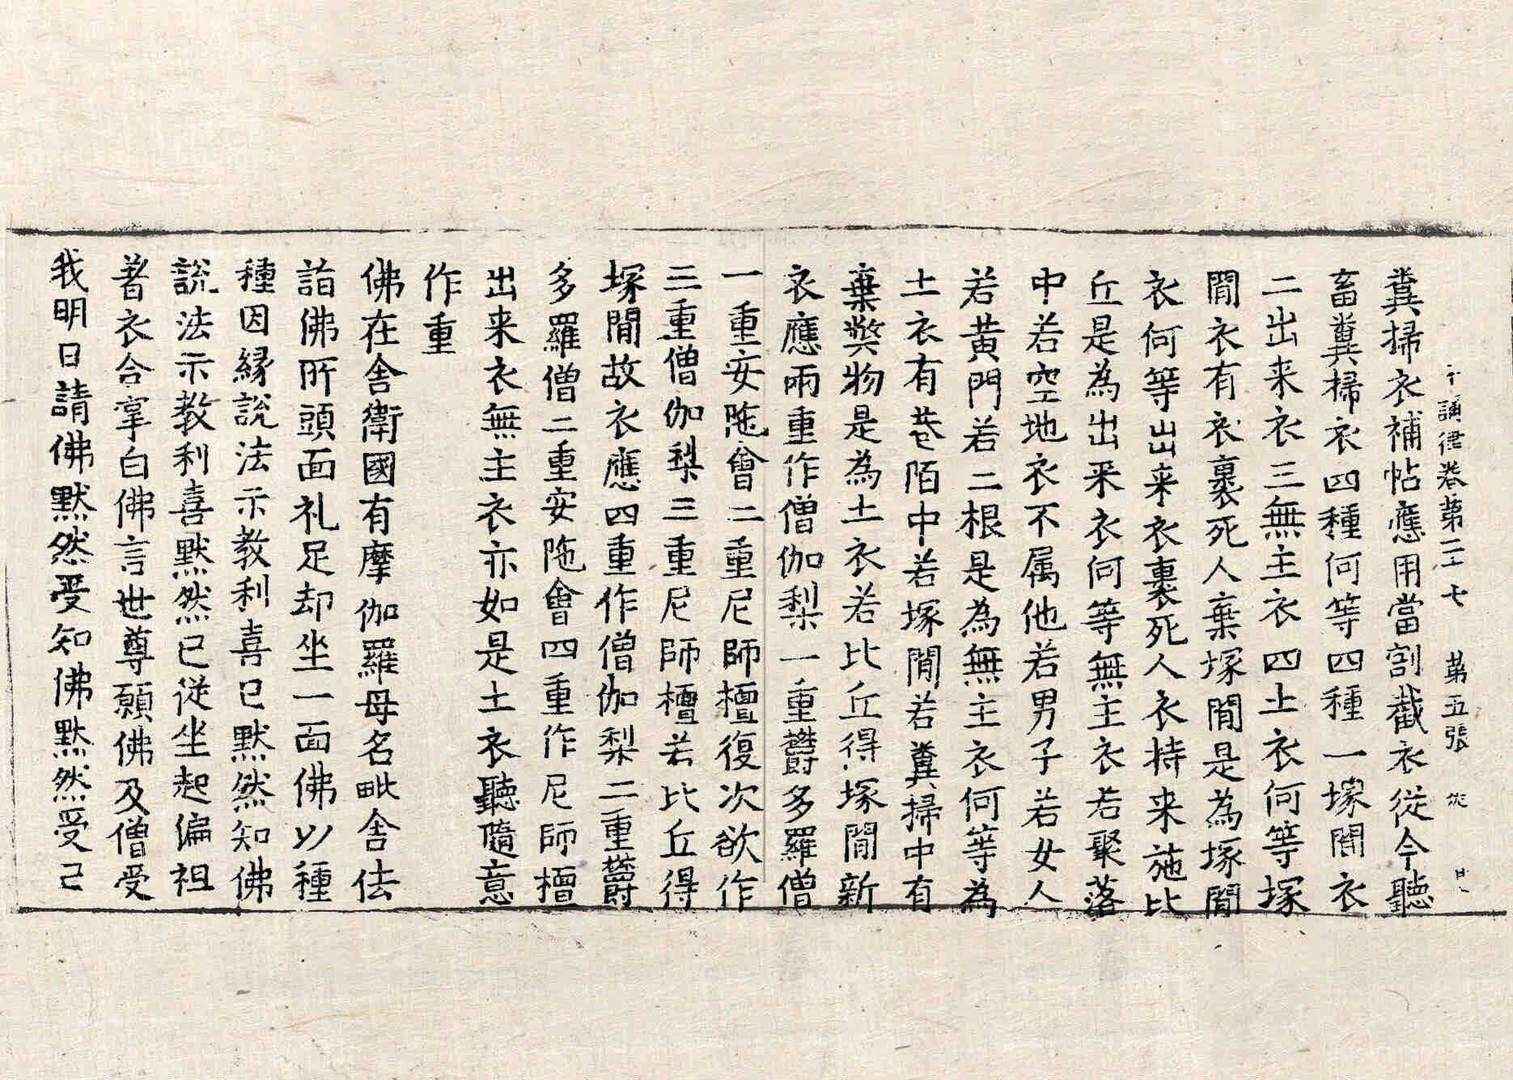 十誦律卷第二十七 第五張 從
糞掃衣補帖應用當割截衣從今聽
畜糞掃衣四種何等四種一塚閒衣
二出来衣三無主衣四土衣何等塚
閒衣有衣裹死人棄塚閒是為塚閒
衣何等出来衣裹死人衣持来施比
丘是為出来衣何等無主衣若聚落
中若空地衣不属他若男子若女人
若黃門若二根是為無主衣何等為
土衣有巷陌中若塚閒若糞掃中有
棄獘物是為土衣若比丘得塚閒新
衣應兩重作僧伽梨一重欝多羅僧
一重安陁會二重尼師檀復次欲作
三重僧伽梨三重尼師檀若比丘得
塚閒故衣應四重作僧伽梨二重欝
多羅僧二重安陁會四重作尼師檀
出来衣無主衣亦如是土衣聽隨意
作重
佛在舍衛國有摩伽羅母名毗舍佉
詣佛所頭面礼足却坐一面佛以種
種因縁說法示教利喜已黙然知佛
說法示教利喜黙然已従坐起偏袒
著衣合掌白佛言世尊願佛及僧受
我明日請佛黙然受知佛黙然受已